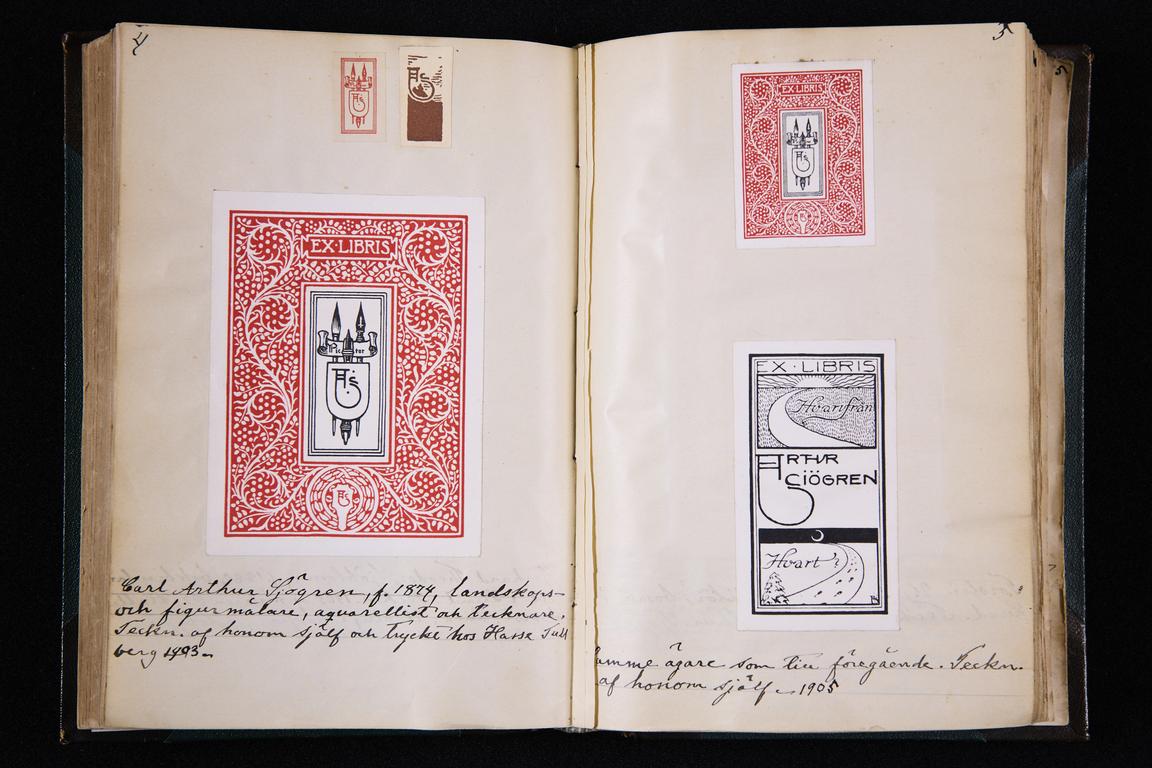 4
ÅS
ÅS
EX·LIBRIS
Pictor
ÅS
ÅS
Carl Arthur Sjögren, f. 1874, landskaps-
och figurmålare, aquarellist och tecknare.
Teckn. af honom själf och tryckt hos Hasse Tull
berg 1903.
5
EX·LIBRIS
EX·LIBRIS
Hvarifrån
ARTHUR
SJÖGREN
Hvart?
amme ägare som till föregående. Teckn.
af honom själf. 1905